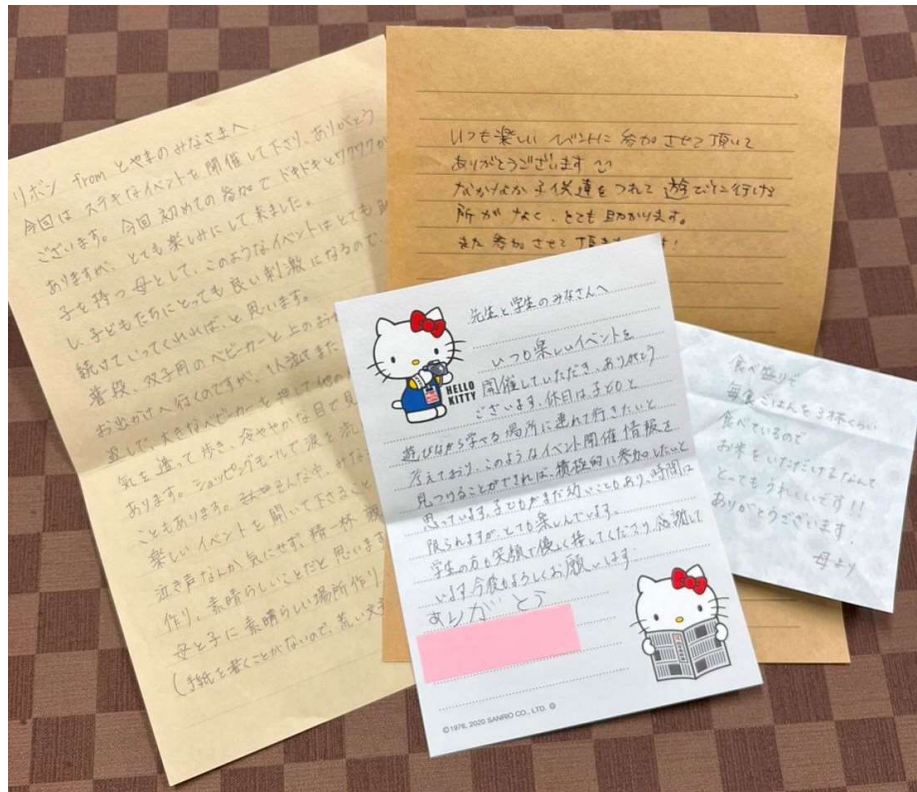 リボン from とやまのみなさまへ
今回は ステキなイベントを開催して下り、ありがとう
ございます。今回初めての参加で ドキドキとワクワクが
ありますが、とても楽しみにして来ました。
子を持つ母として、このようなイベントはとても助
し、子どもたちにとっても良い刺激になるので、
続けていってくれれば、と思います。
普段、双子用のベビーカーと上のお
お出かけへ行くのですが、1人泣きまた
返して、大きなベビーカーを押して他の
気を遣って歩き、冷ややかな目で見
あります。ショッピングモールで涙を流し
こともあります。そんな中、みな
楽しいイベントを開いて下さること
泣き声なんか気にせず、精一杯 親
作り、素晴らしいことだと思います
母と子に素晴らしい場所作り
(手紙を書くことがないので、荒い文
いつも楽しい イベントに 参加させて頂いて
ありがとうございます
なかなか子供達をつれて 遊びに行ける
所が なく、とても助かります。
また 参加させて 頂き
先生と学生のみなさんへ
いつも楽しいイベントを
開催していただき、ありがとう
ございます。休日は子どもと
遊びながら学べる場所に連れて行きたいと
考えており、このようなイベント開催情報を
見つけることができれば、積極的に参加したいと
思っています。子どもがまだ幼いこともあり、時間は
限られますが、とても楽しんでいます。
学生の方も笑顔で優しく接してくださり、感謝して
います。今後もよろしくお願いします。
ありがとう
HELLO
KITTY
©1976, 2020 SANRIO CO., LTD.
食べ盛りで
毎食ごはんを3杯くらい
食べているので
お米をいただけるなんて
とってもうれしいです!!
ありがとうございます。
母より